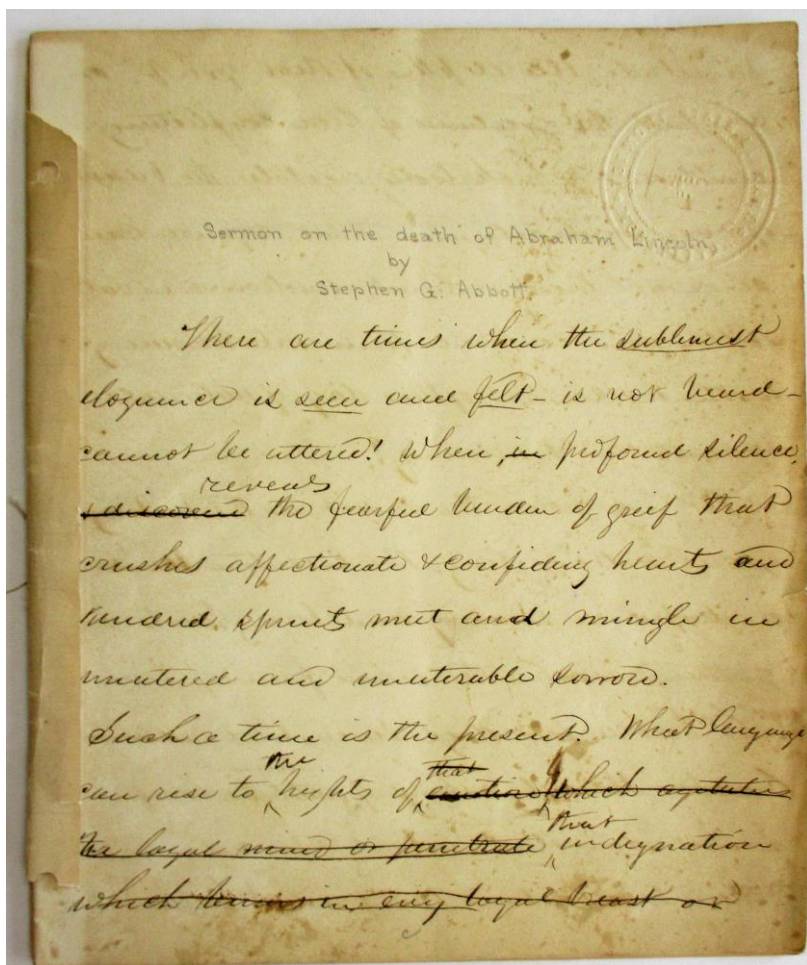 Sermon on the death of Abraham Lincoln,
by
Stephen G. Abbott.
There are times when the sublimest
eloquence is seen and felt – is not heard –
cannot be uttered! When, in profound silence,
reveals
is discovered the fearful burden of grief that
crushes affectionate & confiding hearts and
kindred spirits meet and mingle in
unutered and unuterable sorrow.
Such a time is the present. What language
the that
can rise to hights of emotion which agitates
that
the loyal mind or penetrate indignation
which burns in evry loyal breast or